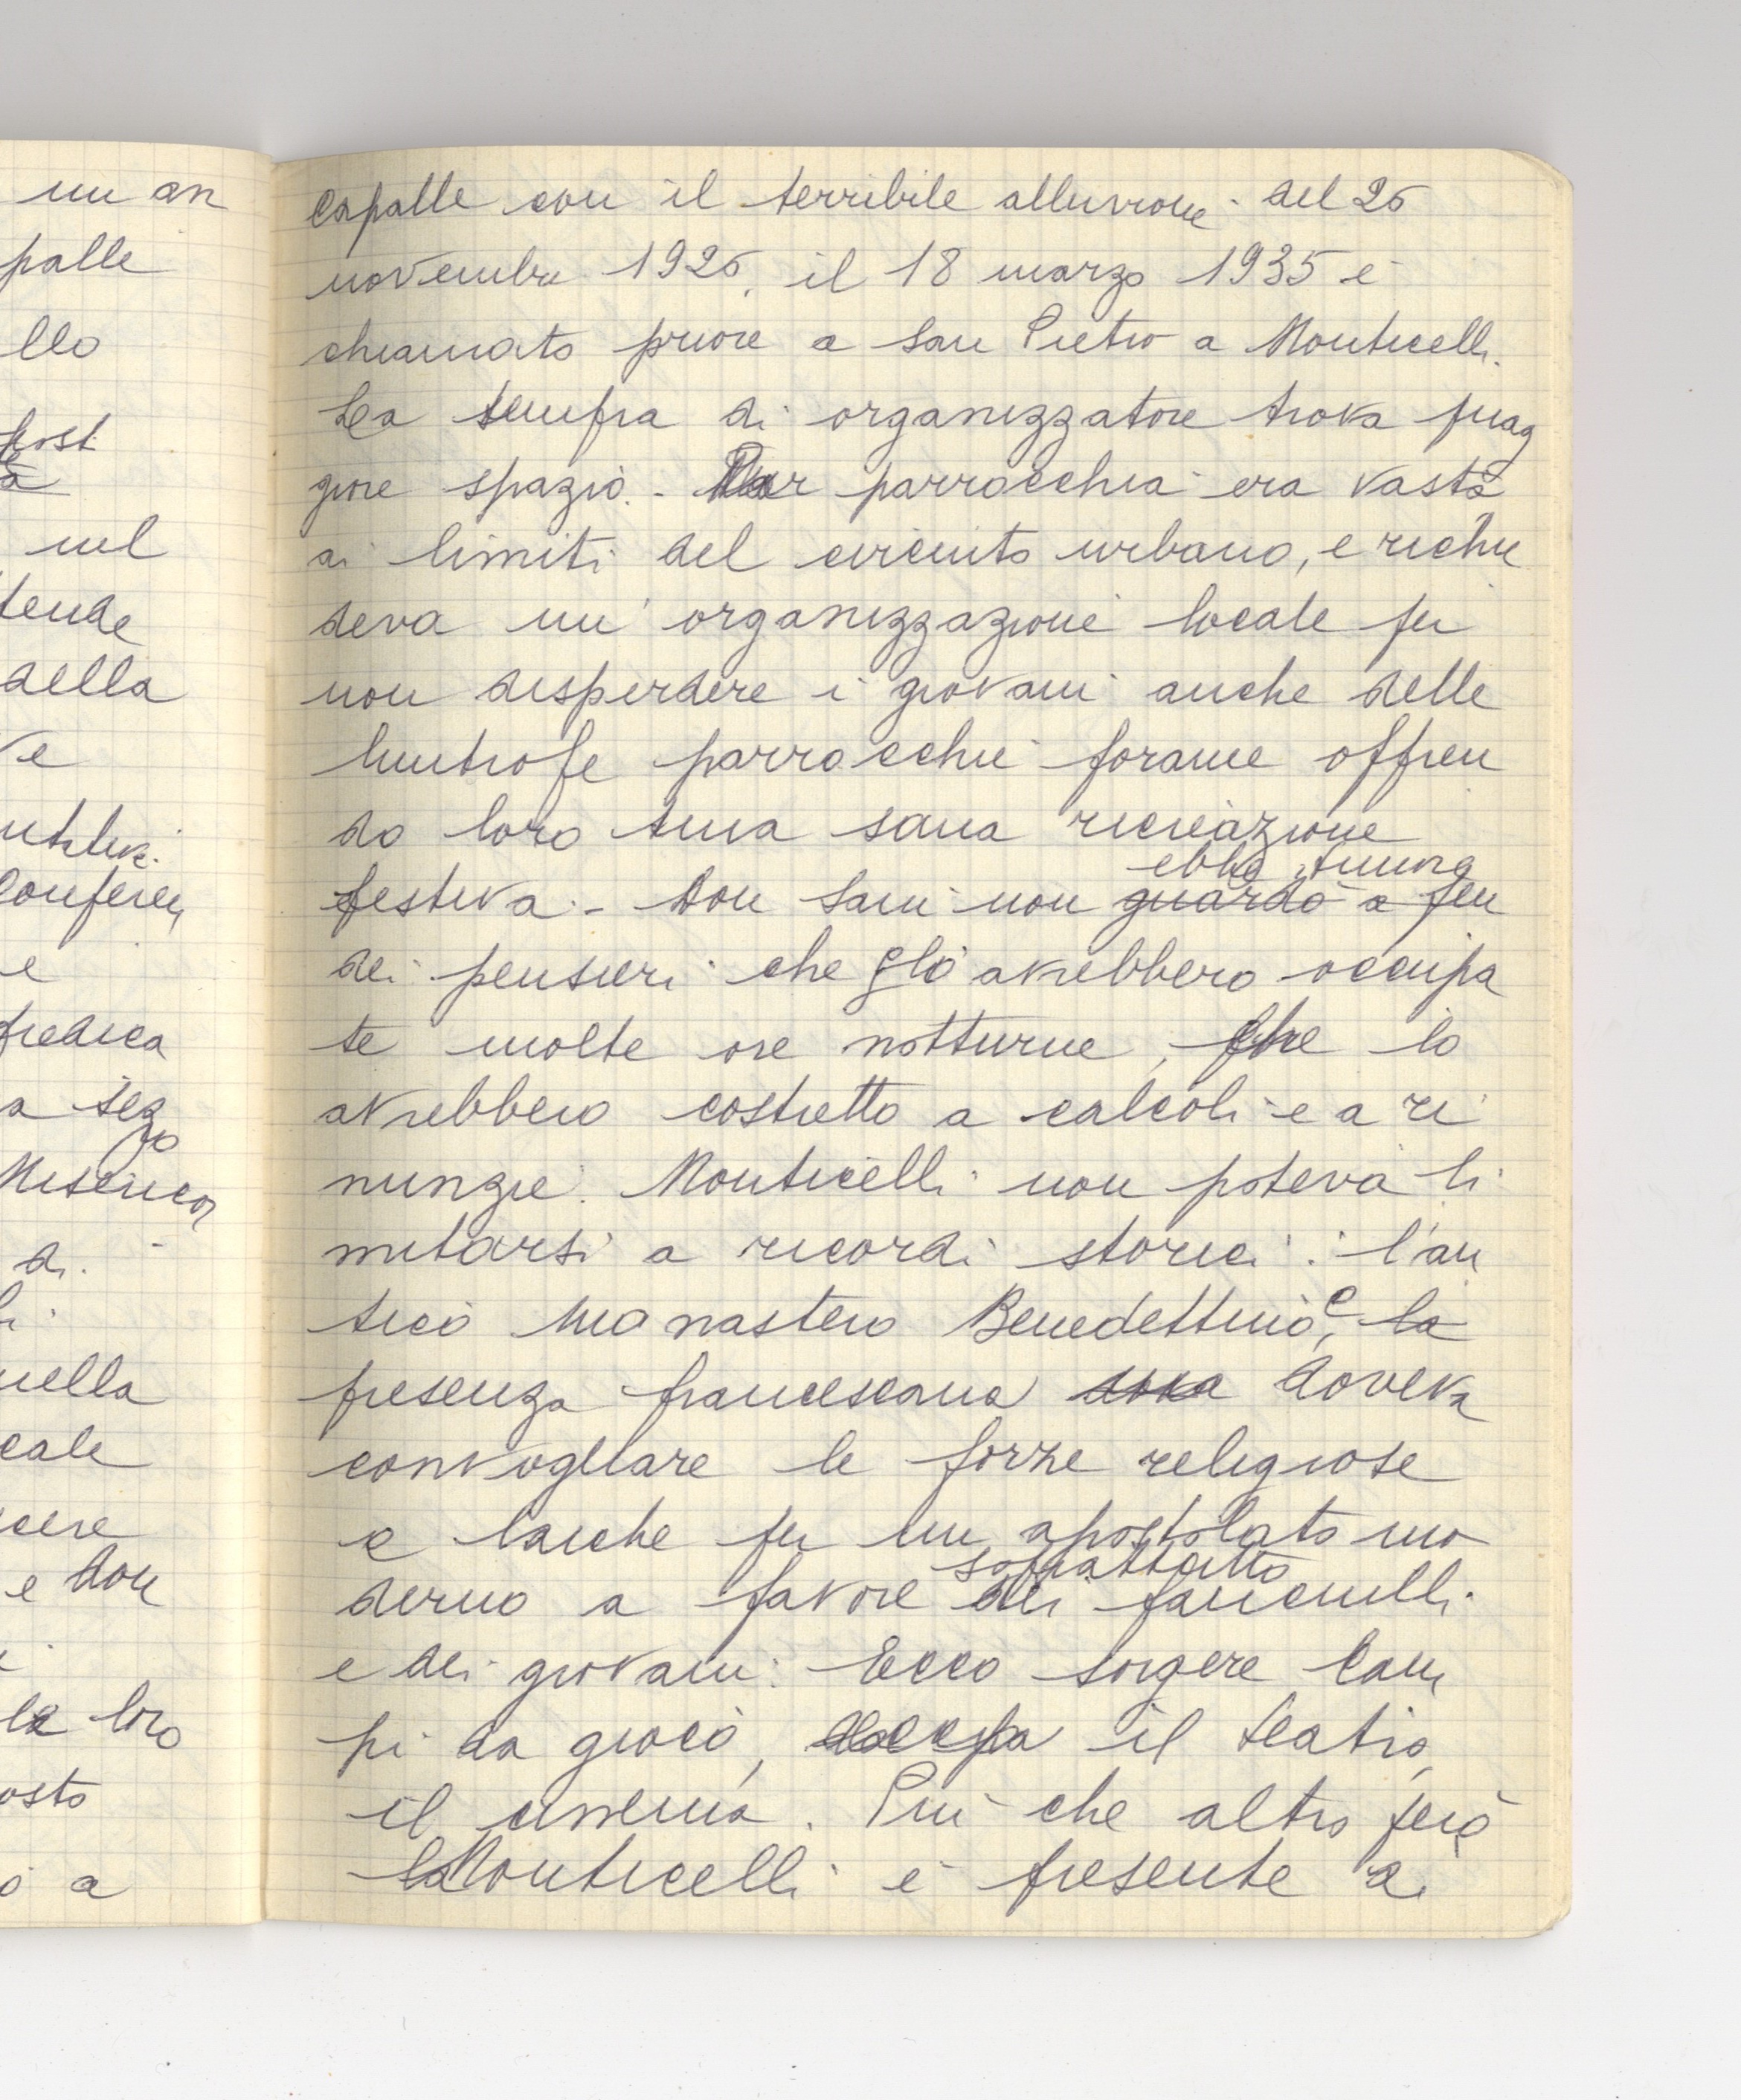 un an
palle
llo
post
a
nel
tende
della
ve
Conferen
e
predica
a sez
zo
Misericor
di
nella
cale
cere
e don
le loro
osto
o a
Capalle con il terribile alluvione del 26
novembre 1926, il 18 marzo 1935 è
chiamato priore a San Pietro a Monticelli.
La tempra di organizzatore trova mag
giore spazio. - parrocchia era vasta
ai limiti del circuito urbano, e richie
deva un' organizzazione locale per
non disperdere i giovani anche delle
limitrofe parrocchie foranee offren
do loro una sana ricreazione
ebbe timore
festiva. - Don Sani non guardò a pen
dei pensieri che gli avrebbero occupa
te molte ore notturne, che lo
avrebbero costretto a calcoli e a ri
nunzie. Monticelli non poteva li
mitarsi a ricordi storici: l'an
tico monastero Benedettino, e la
presenza francescana doveva
convogliare le forze religiose
e laiche per un apostolato mo
soprattutto
derno a favore dei fanciulli
e dei giovani. Ecco sorgere Cam
pi da gioco, il teatro,
il cinema. Più che altro però
Monticelli è presente a